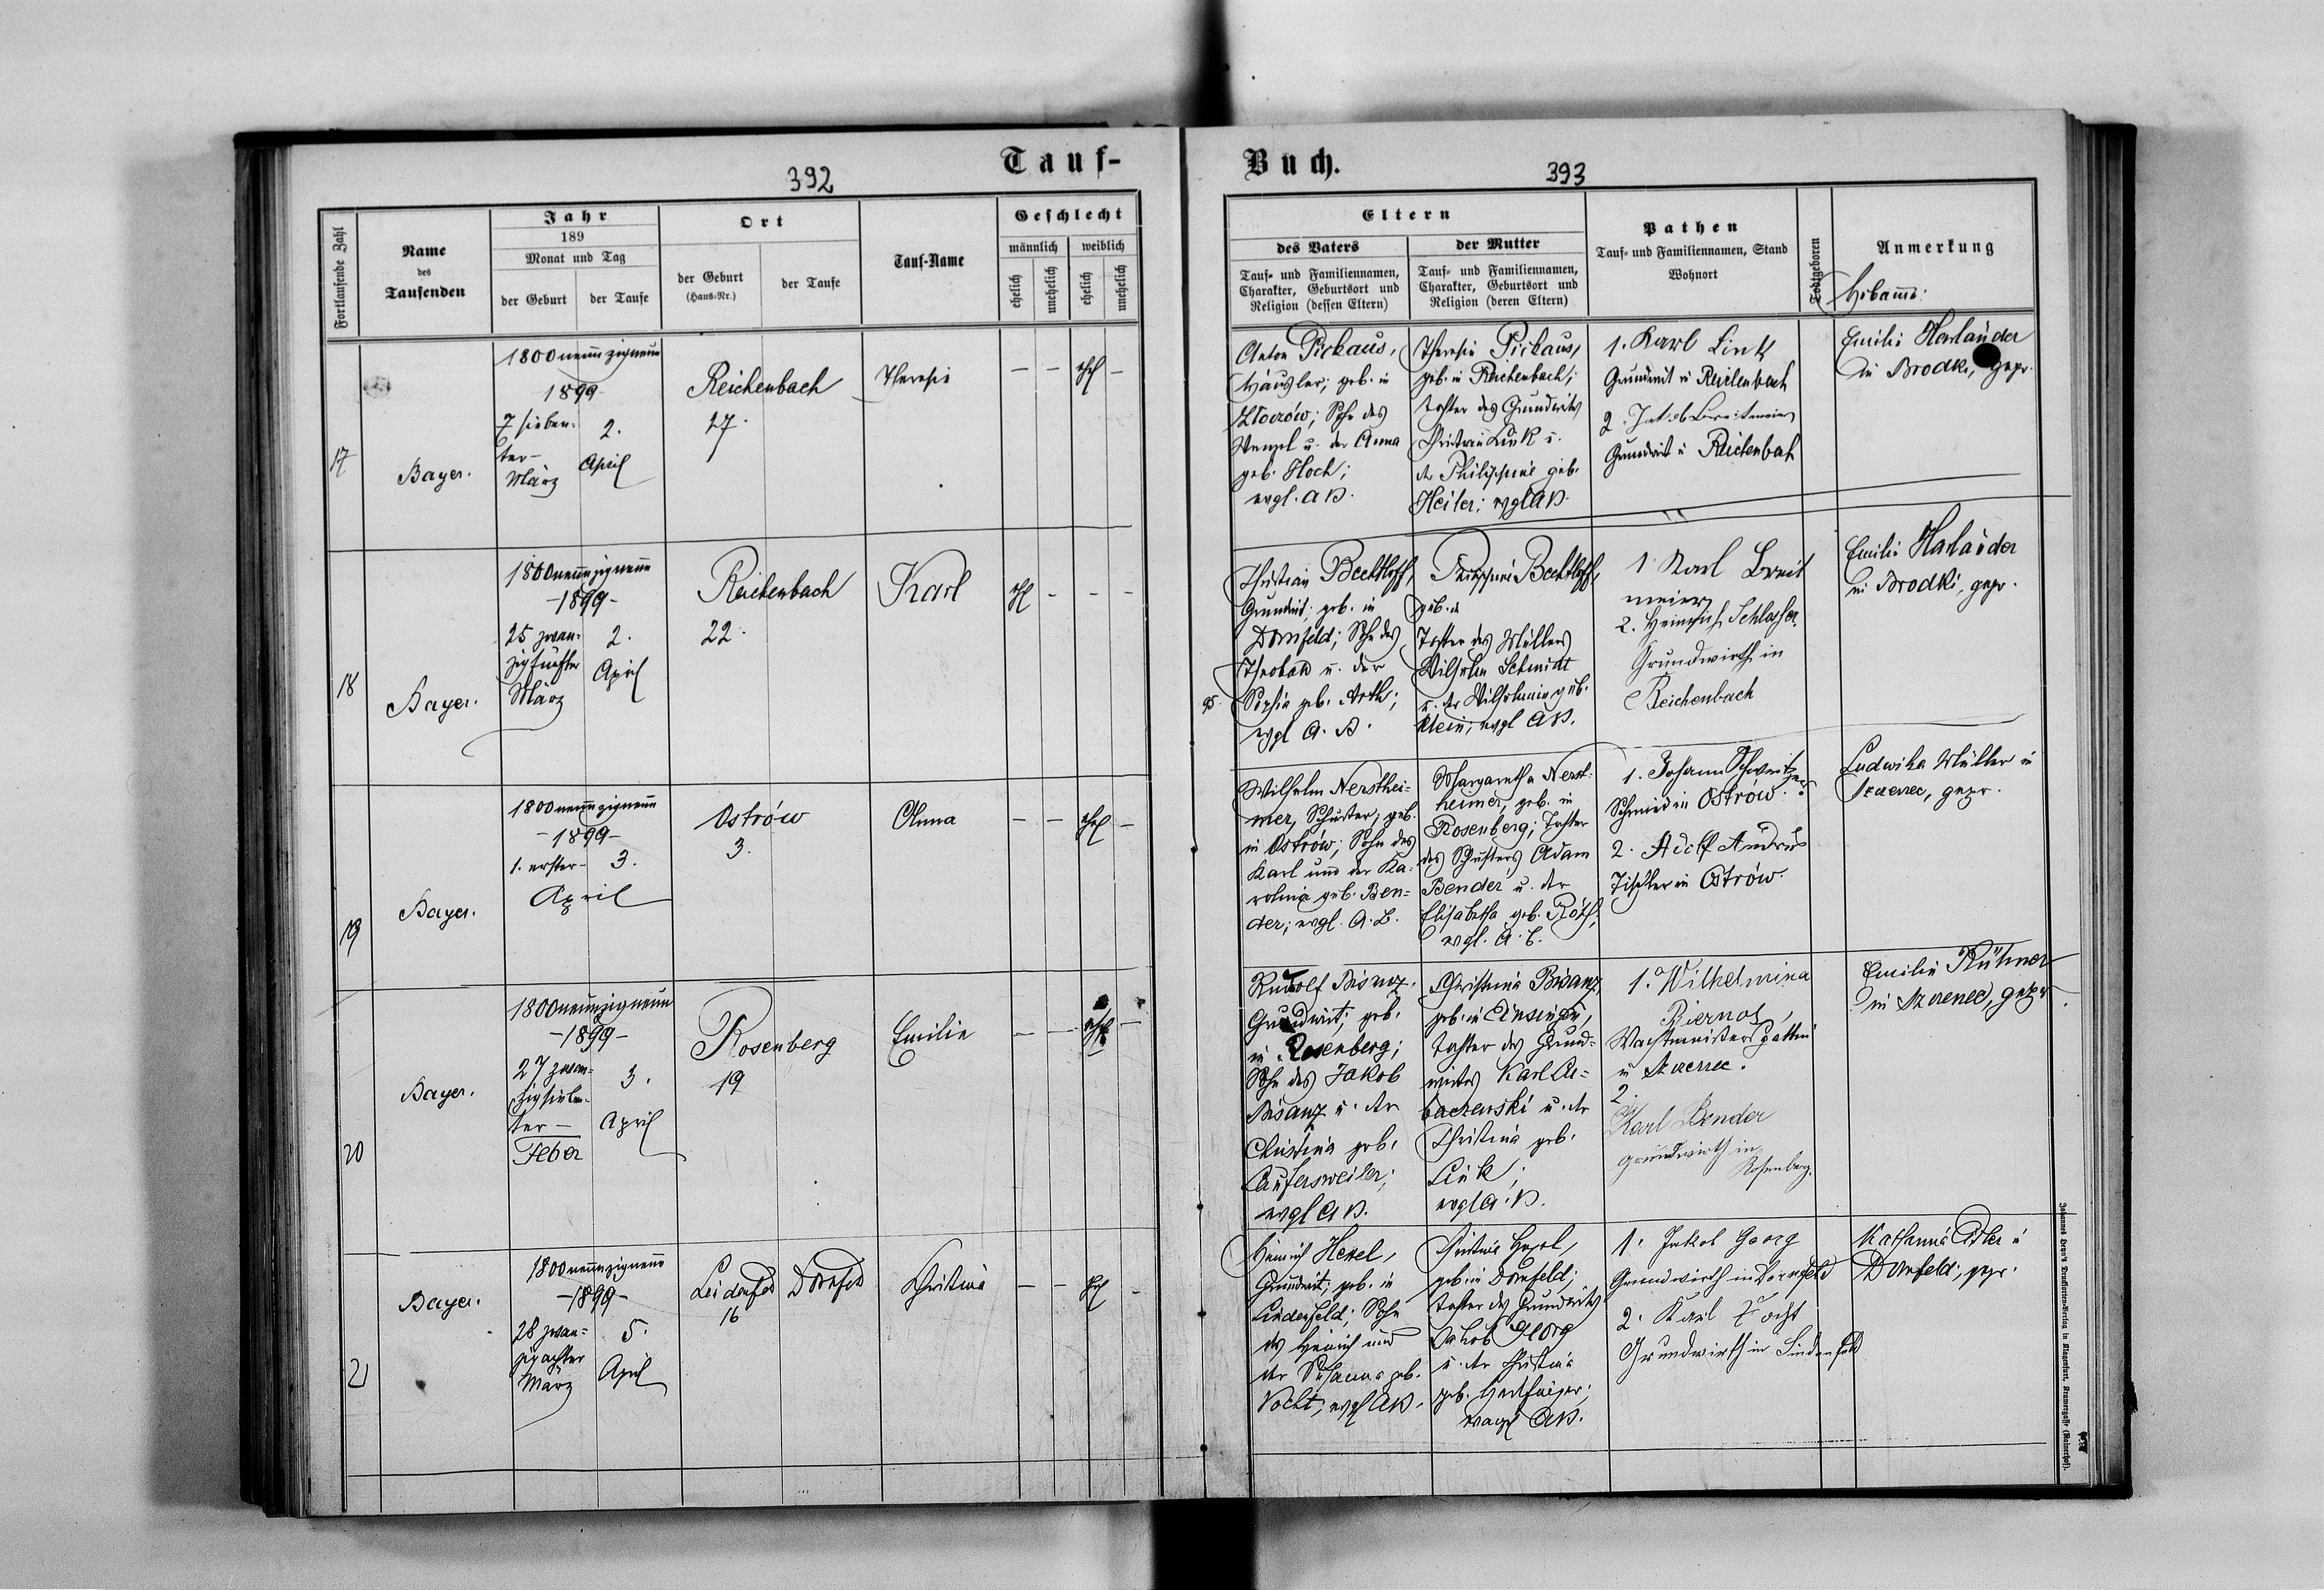 Tauf-
392
Fortlaufende Zahl
Name
des
Taufenden
Jahr
189
Monat und Tag
der Geburt
der Taufe
Ort
der Geburt
(Haus-Nr.)
der Taufe
Tauf-Name
Geschlecht
männlich
weiblich
ehelich
unehelich
ehelich
unehelich
17
Bayer.
1800 neunzigneun
1899
7 sieben-
ter –
März
2.
April
Reichenbach
27.
Theresie
— — ehel —
18
Bayer.
1800 neunzigneun
-1899-
25 zwan-
zigfünfter
März
2.
April
Reichenbach
22.
Karl
ehel - - -
19
Bayer.
1800 neunzigneun
-1899-
1. erster -
3.
April
Ostrów
3.
Anna
— — ehel —
20
Bayer.
1800 neunzigneun
-1899-
27 zwan-
zigsieben-
ter —
Feber
3.
April
Rosenberg
19
Emilie
— — ehel —
21
Bayer.
1800 neunzigneun
-1899-
28 zwan-
zigachter
März
5.
April
Lindenfeld
16
Dornfeld
Christine
— — ehel -
Buch.
393
Eltern
des Vaters
Tauf- und Familiennamen,
Charakter, Geburtsort und
Religion (dessen Eltern)
der Mutter
Tauf- und Familiennamen,
Charakter, Geburtsort und
Religion (deren Eltern)
Pathen
Tauf- und Familiennamen, Stand
Wohnort
Todtgeboren
Anmerkung
Hebamme:
Anton Pickaus,
Häusler, geb. in
Złoczów; Sohn des
Wenzel u. der Anna
geb. Hoch;
evgl. A B.
Theresie Pickaus,
geb. in Reichenbach;
Tochter des Grundwirts
Christian Link u.
der Philippine geb.
Heiler; evgl A B.
1. Karl Link
Grundwirt in Reichenbach
2. Jakob Breitmeier
Grundwirt in Reichenbach
Emilie Harlander
in Brodki, gepr.
Christian Bechtloff,
Grundwirt; geb. in
Dornfeld; Sohn des
Theobald u. der
Sophie geb. Arth;
evgl A. B.
Philippine Bechtloff,
geb. in
Tochter des Müllers
Wilhelm Schmidt
u. der Wilhelmine geb.
Klein; evgl A B.
1. Karl Breit
meier,
2. Heinrich Schlosser.
Grundwirth in
Reichenbach
Emilie Harlander
in Brodki, gepr.
Wilhelm Nersthei-
mer, Schuster, geb.
in Ostrów; Sohn des
Karl und der Ka-
roline geb. Ben-
der; evgl. A. B.
Margaretha Nerst-
heimer, geb. in
Rosenberg; Tochter
des Schusters Adam
Bender u. der
Elisabetha geb. Roth;
evgl. A. B.
1. Johann Schweitzer
Schmied in Ostrów.
2. Adolf Andres
Tischler in Ostrów.
Ludwika Müller in
Szczerzec, gepr.
Rudolf Bisanz.
Grundwirt; geb.
in Rosenberg;
Sohn des Jakob
Bisanz u. der
Christina geb.
Laufersweiler;
evgl A B.
Christina Bisanz,
geb. in Einsingen,
Tochter des Grund-
wirtes Karl Ar-
baczewski u. der
Christina geb.
Link;
evgl A. B.
1. Wilhelmina
Biernat,
Wachtmeisters gattin
in Szczerzec.
2.
Karl Bender
Grundwirth in
Rosenberg.
Emilie Kühner
in Szczerzec, gepr.
Heinrich Hexel,
Grundwirt; geb. in
Lindenfeld; Sohn
des Heinrich und
der Susanna geb.
Vocht; evgl A B.
Christine Hexel,
geb. in Dornfeld;
Tochter des Grundwirts
Jakob Georg
u. der Christine
geb.
evgl A B.
1. Jakob Georg
Grundwirth in Dornfeld
2. Karl Vocht
Grundwirth in Lindenfeld
Katharina Adler in
Dornfeld; gepr.
Johannes Heyn's Drucksorten-Verlag in Klagenfurt, Kramergasse (Rainerhof).